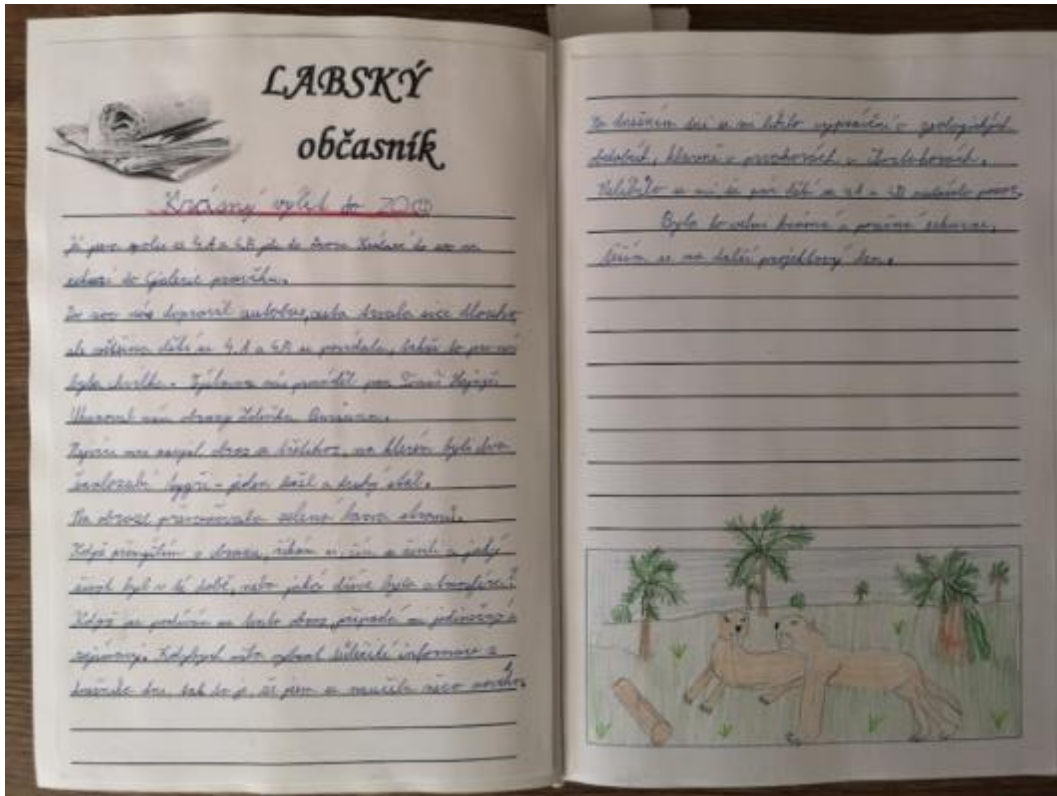 LABSKÝ
občasník
Krásný výlet do ZOO
Já jsem spolu se 4.A a 4.B jela do Dvora Králové do zoo na
exkurzi do Galerie pravěku.
Do zoo nás dopravil autobus, cesta trvala sice dlouho,
ale většina dětí ze 4.A a 4.B si povídala, takže to pro mě
byla chvilka. nás prováděl pan Tomáš
Ukazoval nám obrazy Zdeňka Buriana.
Nejvíce mě zaujal obraz na kterém byli dva
šavlozubí tygři - jeden ležel a druhý stál.
Na obraze převažovala zelená barva stromů.
Když přemýšlím o obraze, říkám si, čím se živili a jaký
život byl v té době, nebo jaká dříve byla atmosféra?
Když se podívám na tento obraz, připadá mi jedinečný a
zajímavý. Kdybych měla vybrat důležité informace z
dnešního dne, tak to je, že jsem se naučila něco nového.
Na dnešním dni se mi líbilo vyprávění o geologických
dobách, hlavně o prvohorách a čtvrtohorách.
Nelíbilo se mi, že pár dětí ze 4.A a 4.B nedávalo pozor.
Byla to velmi krásná a poučná exkurze.
Těším se na další projektový den.